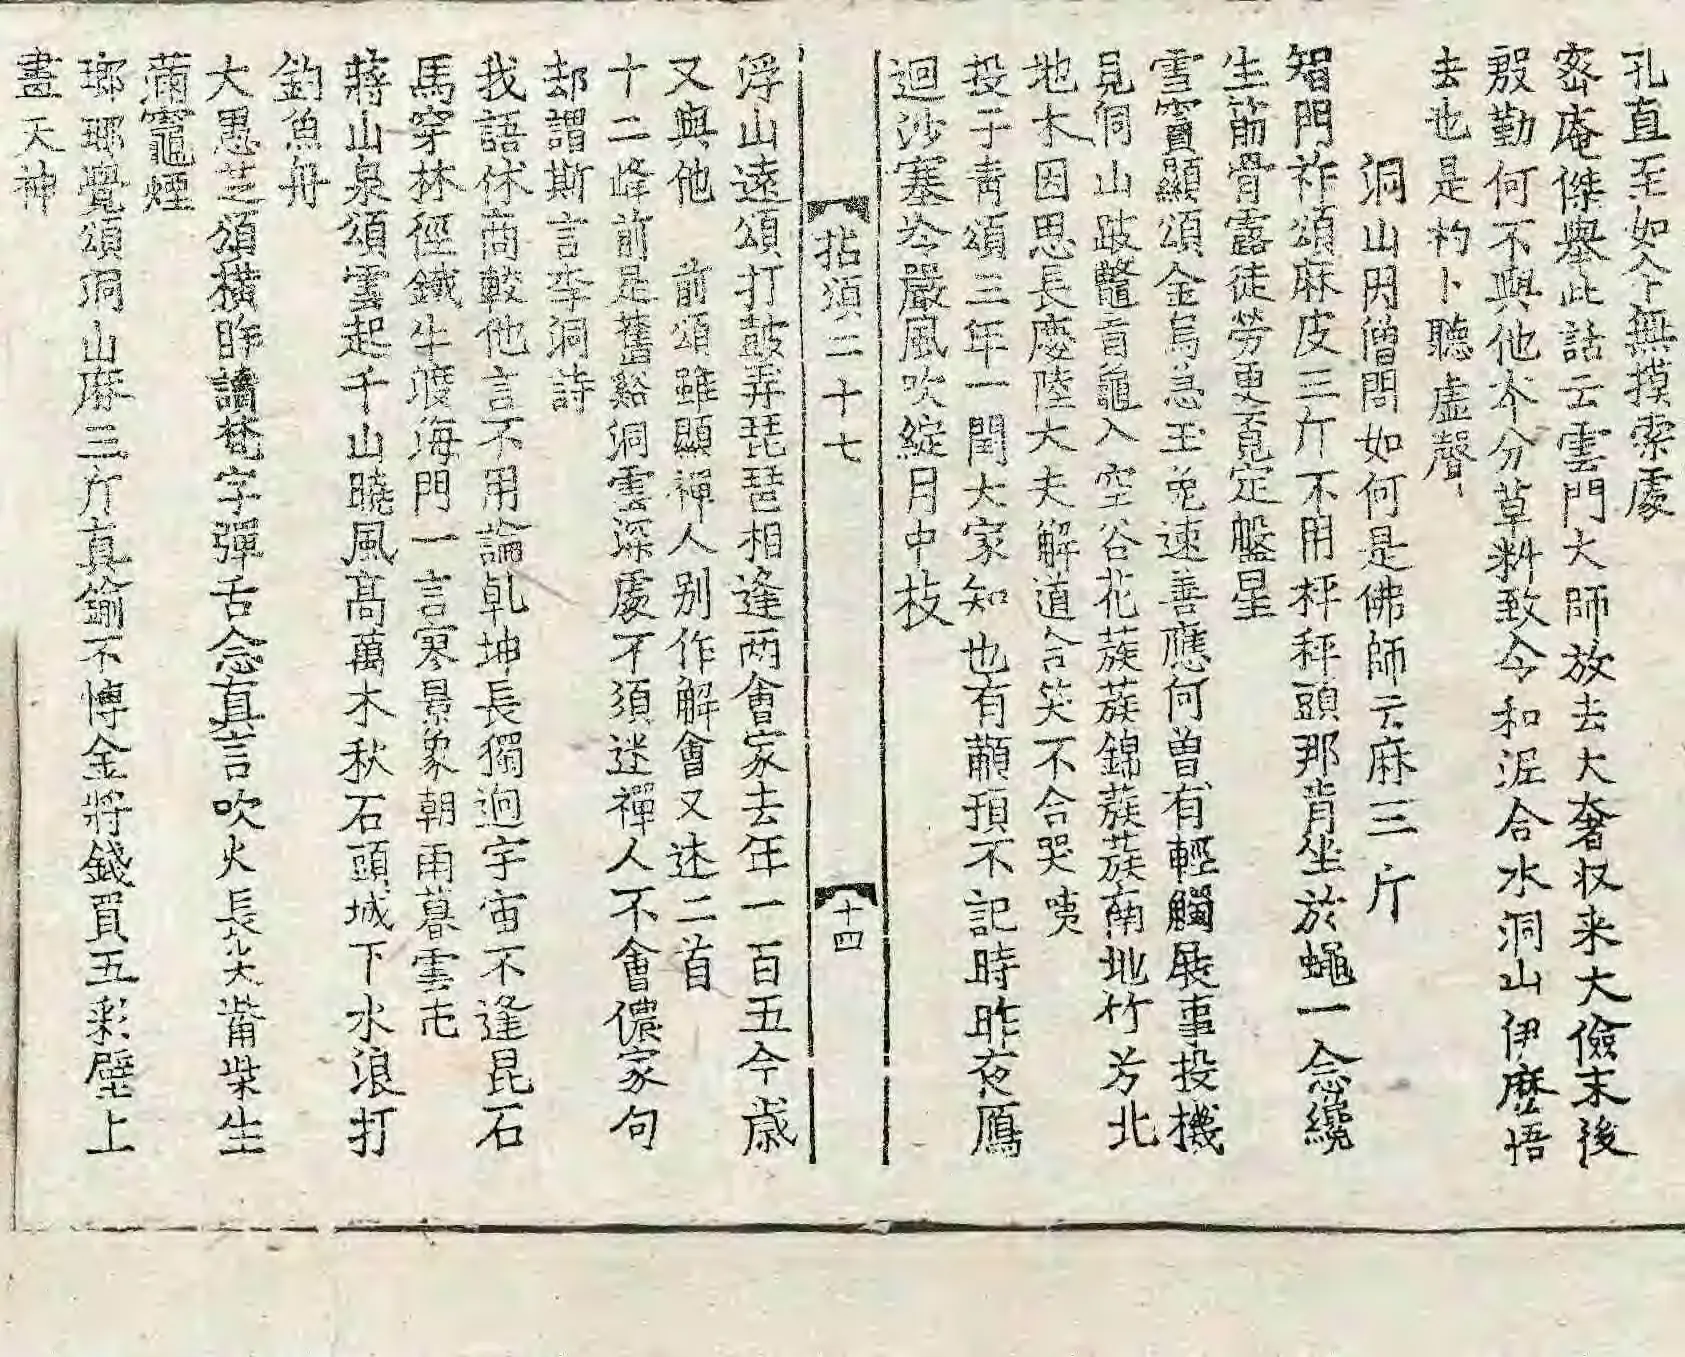 孔直至如今無摸索處
密庵傑舉此話云雲門大師放去大奢収来大儉末後
殷勤何不與他本分草料致令和泥合水洞山伊麽悟
去也是杓卜聽虛聲
洞山因僧問如何是佛師云麻三斤
智門祚頌麻皮三斤不用秤秤頭那肯坐於蠅一念纔
生筋骨露徒勞更覔定盤星
雪竇顯頌金烏急玉兔速善應何曽有輕觸展事投機
見洞山跛鼈盲龜入空谷花蔟蔟錦蔟蔟南地竹芳北
地木因思長慶陸大夫解道合笑不合哭咦
投子青頌三年一閏大家知也有顢頇不記時昨夜鴈
迴沙塞冷嚴風吹綻月中枝
拈頌二十七
十四
浮山遠頌打鼓弄琵琶相逢两會家去年一百五今歲
又與他 前頌雖顯禪人别作解會又述二首
十二峰前是舊谿洞雲深處不須迷禪人不會儂家句
却謂斯言李洞詩
我語休商較他言不用論乹坤長獨逈宇宙不逢昆石
馬穿林徑鐵牛皷海門一言寒景象朝雨暮雲屯
蔣山泉頌雲起千山曉風髙萬木秋石頭城下水浪打
釣魚舟
大愚芝頌橫眸讀梵字彈舌念真言吹火長尖觜柴生
滿竈煙
瑯瑘覺頌洞山麻三斤真鍮不博金將錢買五彩壁上
畫天神